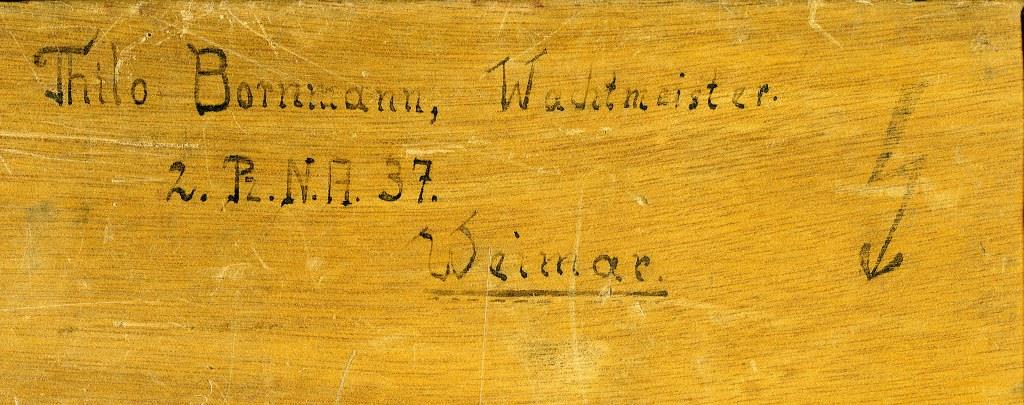 Thilo Bornmann, Wachtmeister.
2. Pz.N.A. 37.
Weimar.